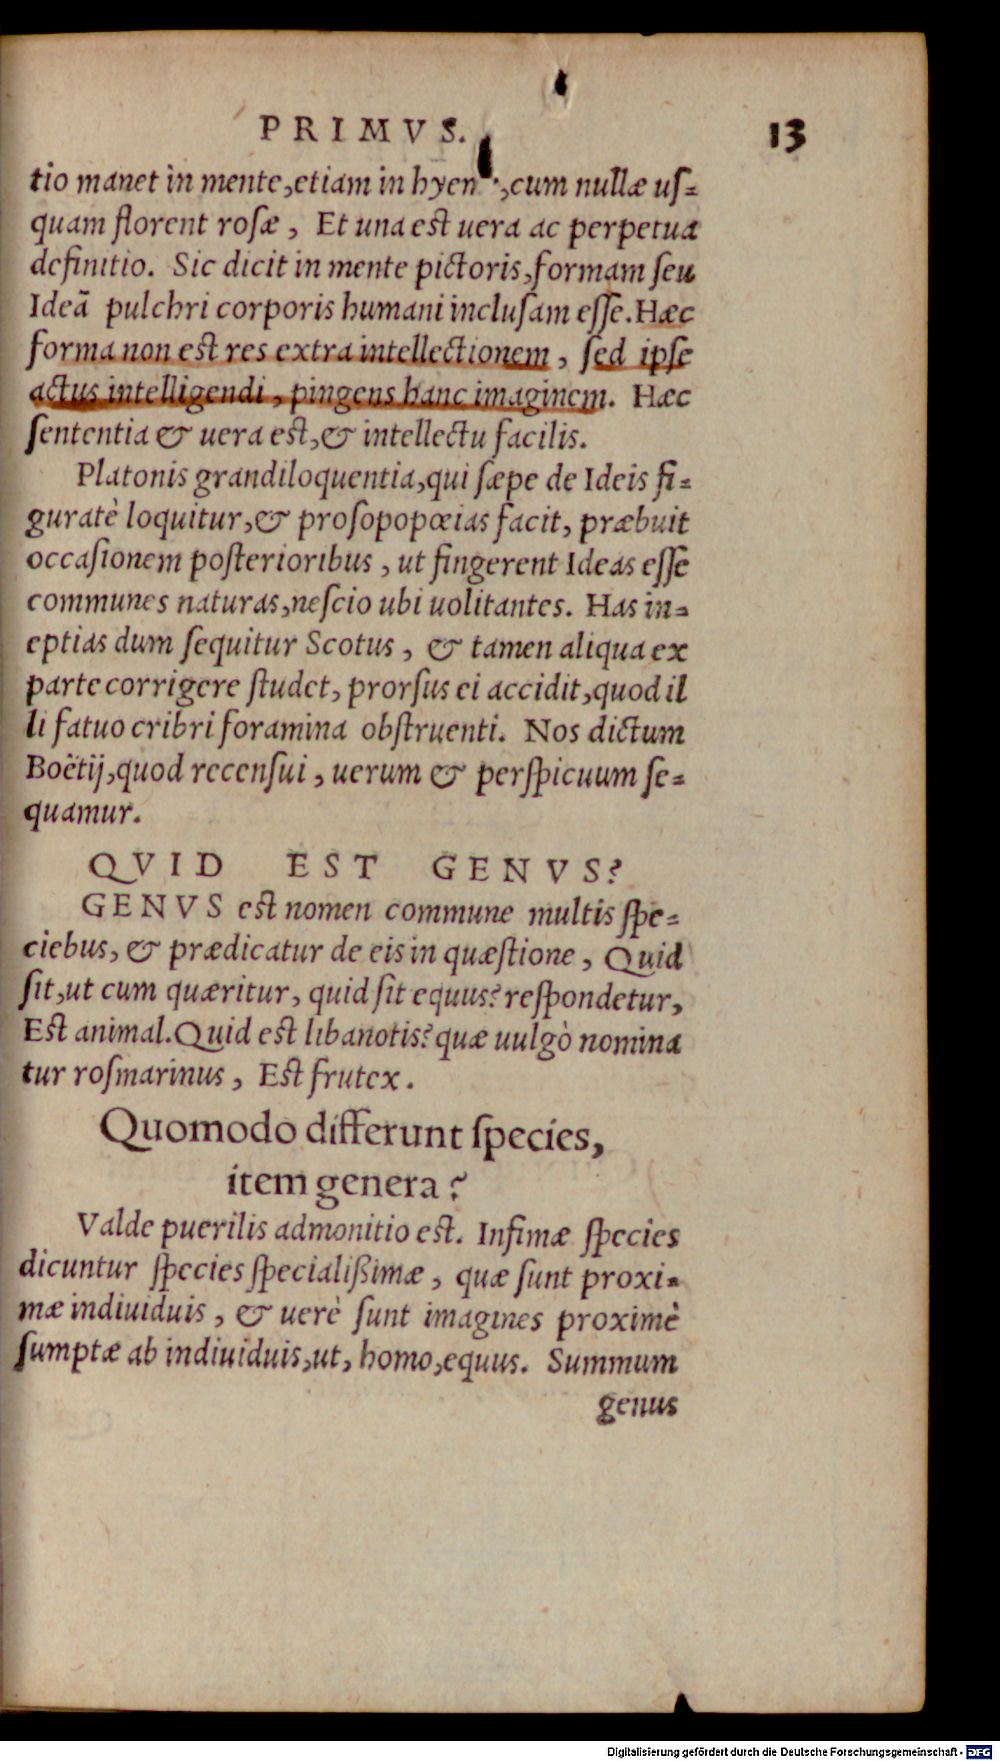 PRIMVS. 13
tio manet in mente, etiam in hyen , cum nullæ uſ-
quam florent roſæ, Et una est uera ac perpetua
definitio. Sic dicit in mente pictoris, formam ſeu
Ideã pulchri corporis humani incluſam eſſe. Hæc
forma non est res extra intellectionem, ſed ipſe
actus intelligendi, pingens hanc imaginem. Hæc
ſententia & uera est, & intellectu facilis.
Platonis grandiloquentia, qui ſæpe de Ideis fi-
guratè loquitur, & proſopopœias facit, præbuit
occaſionem poſterioribus, ut fingerent Ideas eſſe
communes naturas, neſcio ubi uolitantes. Has in-
eptias dum ſequitur Scotus, & tamen aliqua ex
parte corrigere ſtudet, prorſus ei accidit, quod il
li fatuo cribri foramina obſtruenti. Nos dictum
Boëtij, quod recenſui, uerum & perſpicuum ſe-
quamur.
QVID EST GENVS?
GENVS est nomen commune multis ſpe-
ciebus, & prædicatur de eis in quæſtione, Quid
ſit, ut cum quæritur, quid ſit equus? reſpondetur,
Est animal. Quid est libanotis? quæ uulgò nomina
tur roſmarinus, Est frutex.
Quomodo differunt ſpecies,
item genera?
Valde puerilis admonitio est. Infimæ ſpecies
dicuntur ſpecies ſpecialißimæ, quæ ſunt proxi-
mæ indiuiduis, & uerè ſunt imagines proximè
ſumptæ ab indiuiduis, ut, homo, equus. Summum
genus
Digitalisierung gefördert durch die Deutsche Forschungsgemeinschaft - DFG